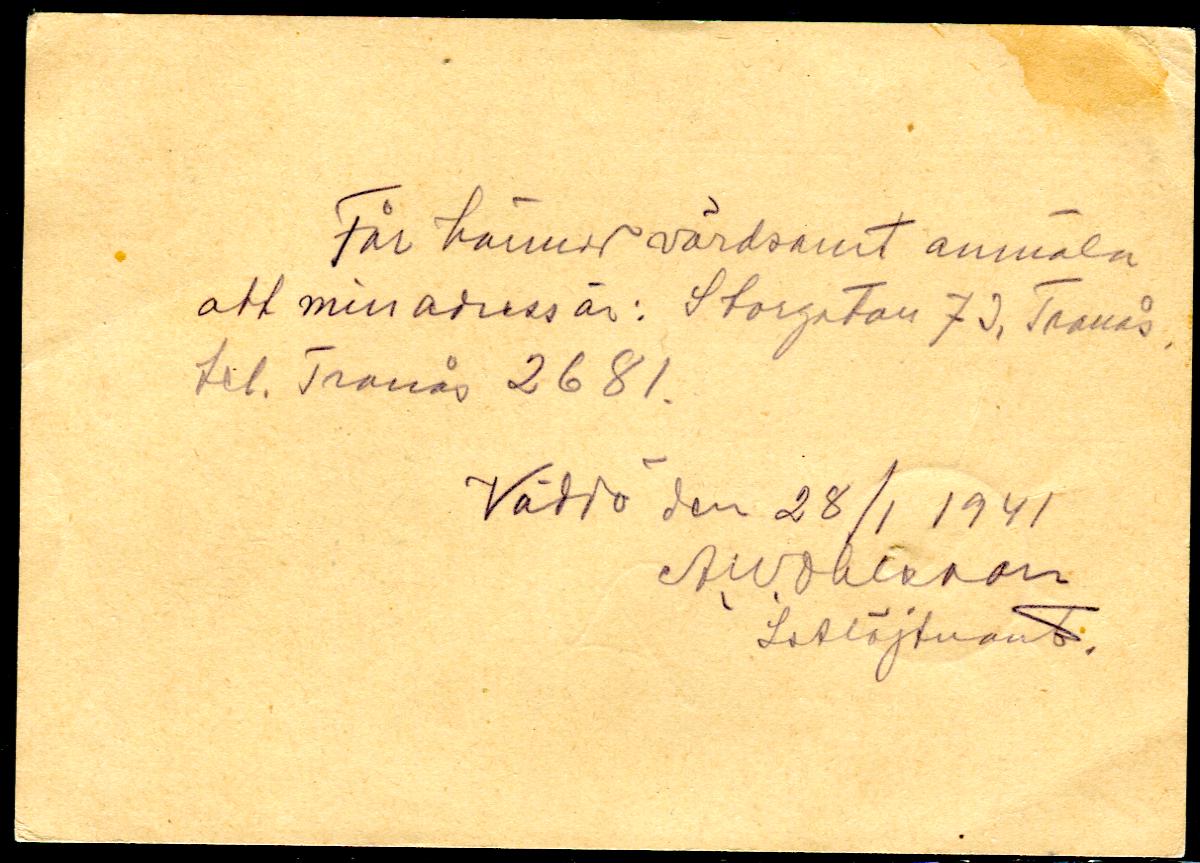 Får härmed vördsamt anmäla
att min adress är: Storgatan 73, Tranås,
tel. Tranås 2681.
Väddö den 28/1 1941
A. W. Dahlsson
Löjtnant.